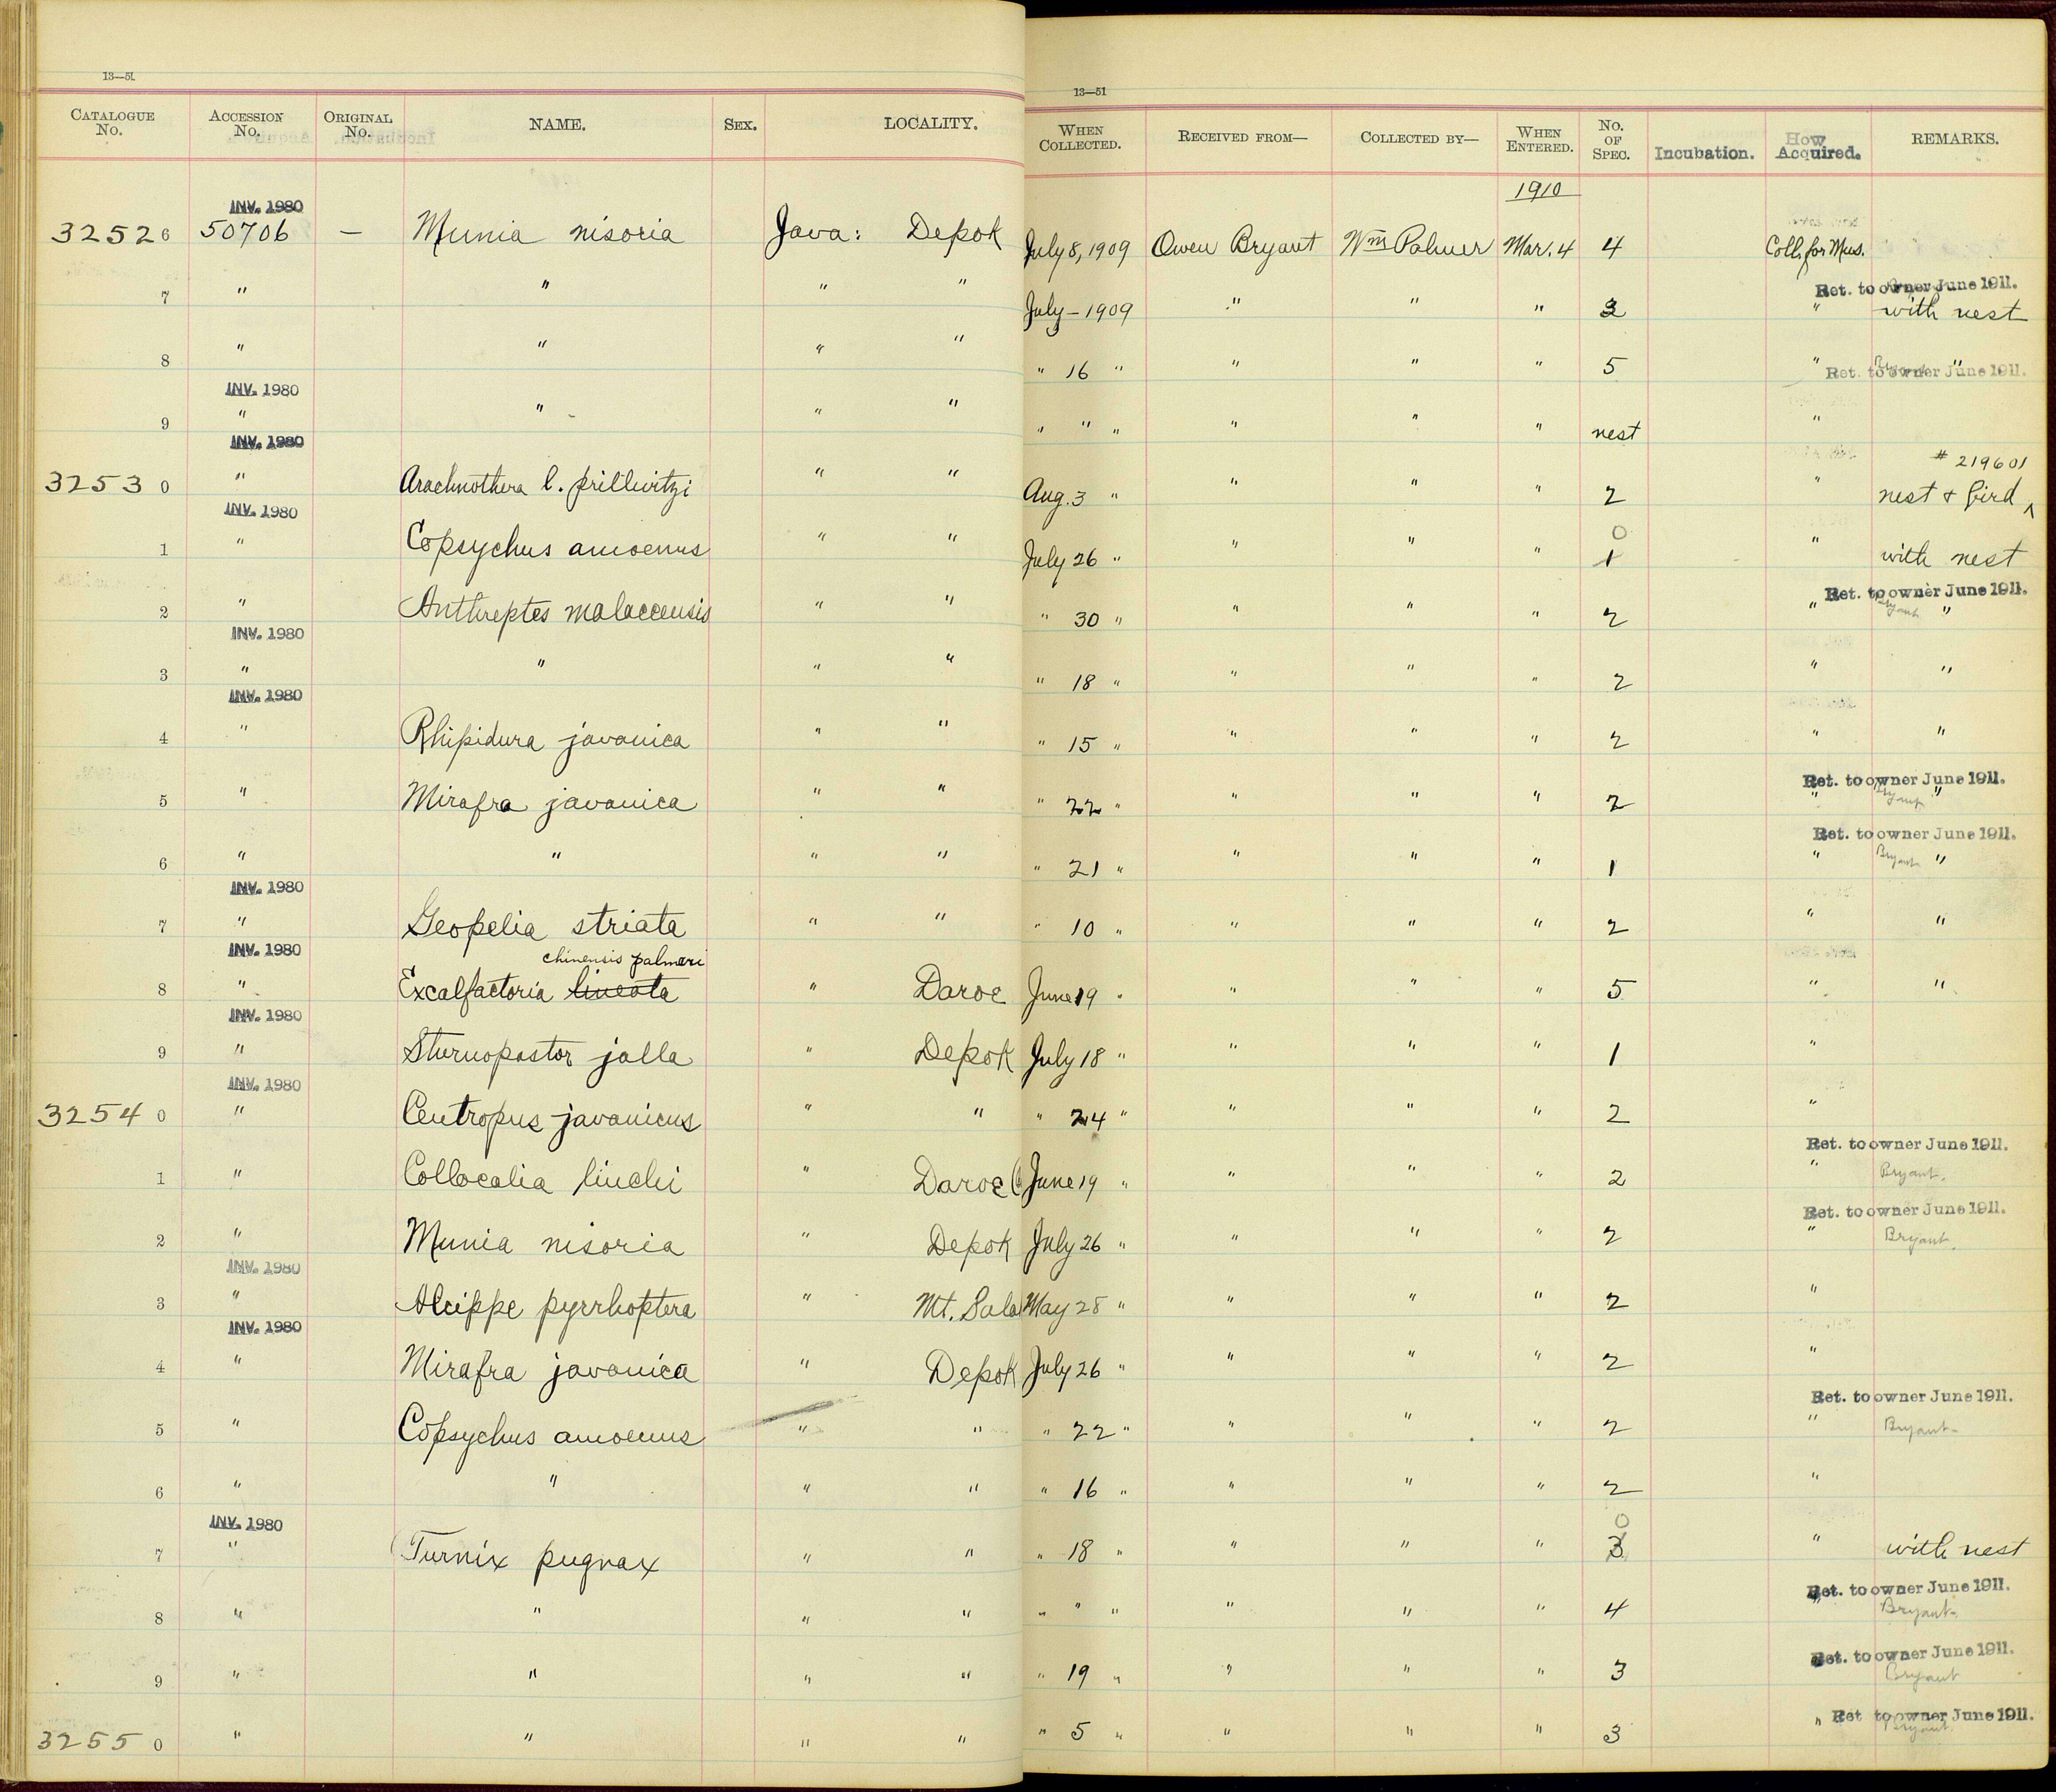 13—51
13—51
CATALOGUE No. ACCESSION No. ORIGINAL No. NAME. SEX. LOCALITY. WHEN COLLECTED. RECEIVED FROM— COLLECTED BY— WHEN ENTERED. No. OF SPEC. Incubation. How Acquired. REMARKS.
1910
INV. 1980
32526 50706 — Munia nisoria Java: Depok July 8, 1909 Owen Bryant Wm Palmer Mar. 4 4 Coll. for Mus.
Ret. to owner June 1911.
7 " " " " July – 1909 " " " 3 " with nest
8 " " " " " 16 " " " " 5 " "
Bryant
Ret. to owner June 1911.
INV. 1980
9 " " " " " " " " " " nest "
INV. 1980
# 219601
32530 " Arachnothera l. prillwitzi " " Aug. 3 " " " " 2 " nest & bird ^
INV. 1980
0
1 " Copsychus amoenus " " July 26 " " " " 1 " with nest
Ret. to owner June 1911.
2 " Anthreptes malaccensis " " " 30 " " " " 2 " Bryant "
INV. 1980
3 " " " " " 18 " " " " 2 " "
INV. 1980
4 " Rhipidura javanica " " " 15 " " " " 2 " "
Ret. to owner June 1911.
5 " Mirafra javanica " " " 22 " " " " 2 " Bryant "
Ret. to owner June 1911.
6 " " " " " 21 " " " " 1 " Bryant "
INV. 1980
7 " Geopelia striata " " " 10 " " " " 2 " "
INV. 1980
chinensis palmeri
8 " Excalfactoria lineata " Daroe June 19 " " " " 5 " "
INV. 1980
9 " Sturnopastor jalla " Depok July 18 " " " " 1 "
INV. 1980
32540 " Centropus javanicus " " " 24 " " " " 2 "
Ret. to owner June 1911.
1 " Collocalia linchi " Daroe June 19 " " " " 2 " Bryant.
Ret. to owner June 1911.
2 " Munia nisoria " Depok July 26 " " " " 2 " Bryant.
INV. 1980
3 " Alcippe pyrrhoptera " Mt. Sala May 28 " " " " 2 "
INV. 1980
4 " Mirafra javanica " Depok July 26 " " " " 2 "
Ret. to owner June 1911.
5 " Copsychus amoenus " " " 22 " " " " 2 " Bryant
6 " " " " " 16 " " " " 2 "
INV. 1980
0
7 " Turnix pugnax " " " 18 " " " " 3 " with nest
Ret. to owner June 1911.
8 " " " " " " " " " " 4 " Bryant
Ret. to owner June 1911.
9 " " " " " 19 " " " " 3 Bryant
Ret to owner June 1911.
32550 " " " " " 5 " " " " 3 " Bryant